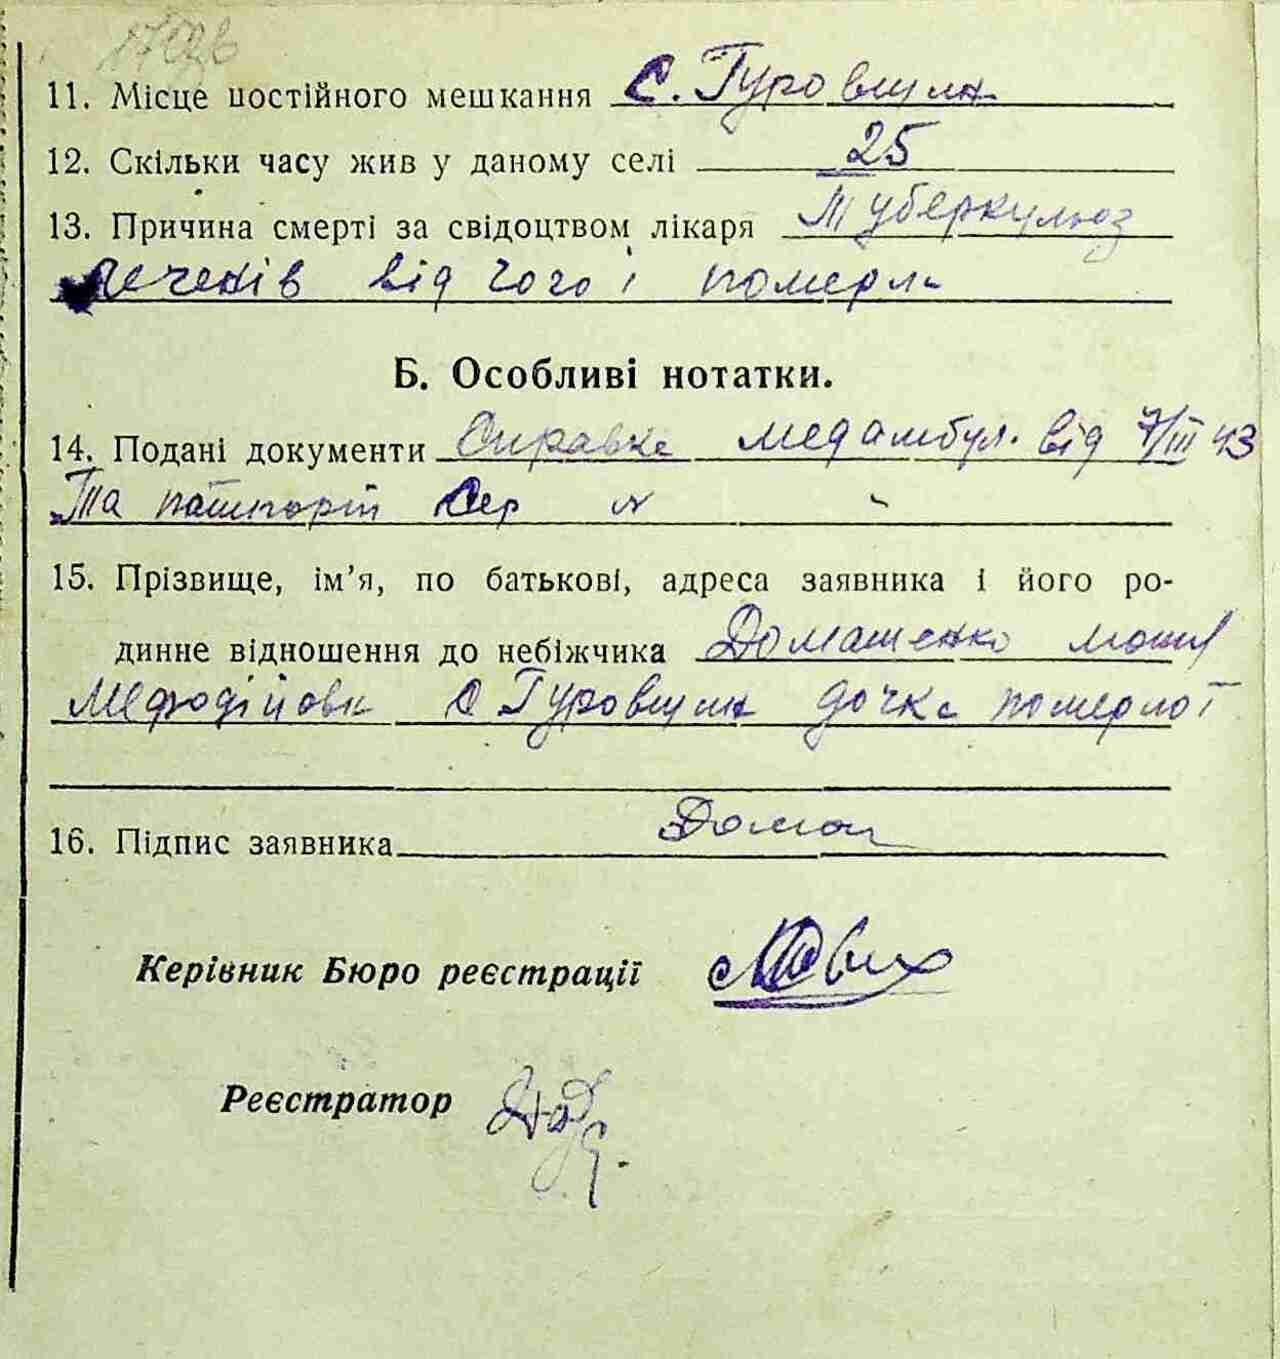 11. Місце постійного мешкання С. Гуровщина
12. Скільки часу жив у даному селі 25
13. Причина смерті за свідоцтвом лікаря Туберкульоз
легенів від чого і померла
Б. Особливі нотатки.
14. Подані документи Справка медамбул. від 7/III 43
Та пашпорт Сер N
15. Прізвище, ім’я, по батькові, адреса заявника і його ро-
динне відношення до небіжчика Домашенко
Мефодіївна С Гуровщина дочка померлої
16. Підпис заявника Домаш
Керівник Бюро реєстрації
Реєстратор